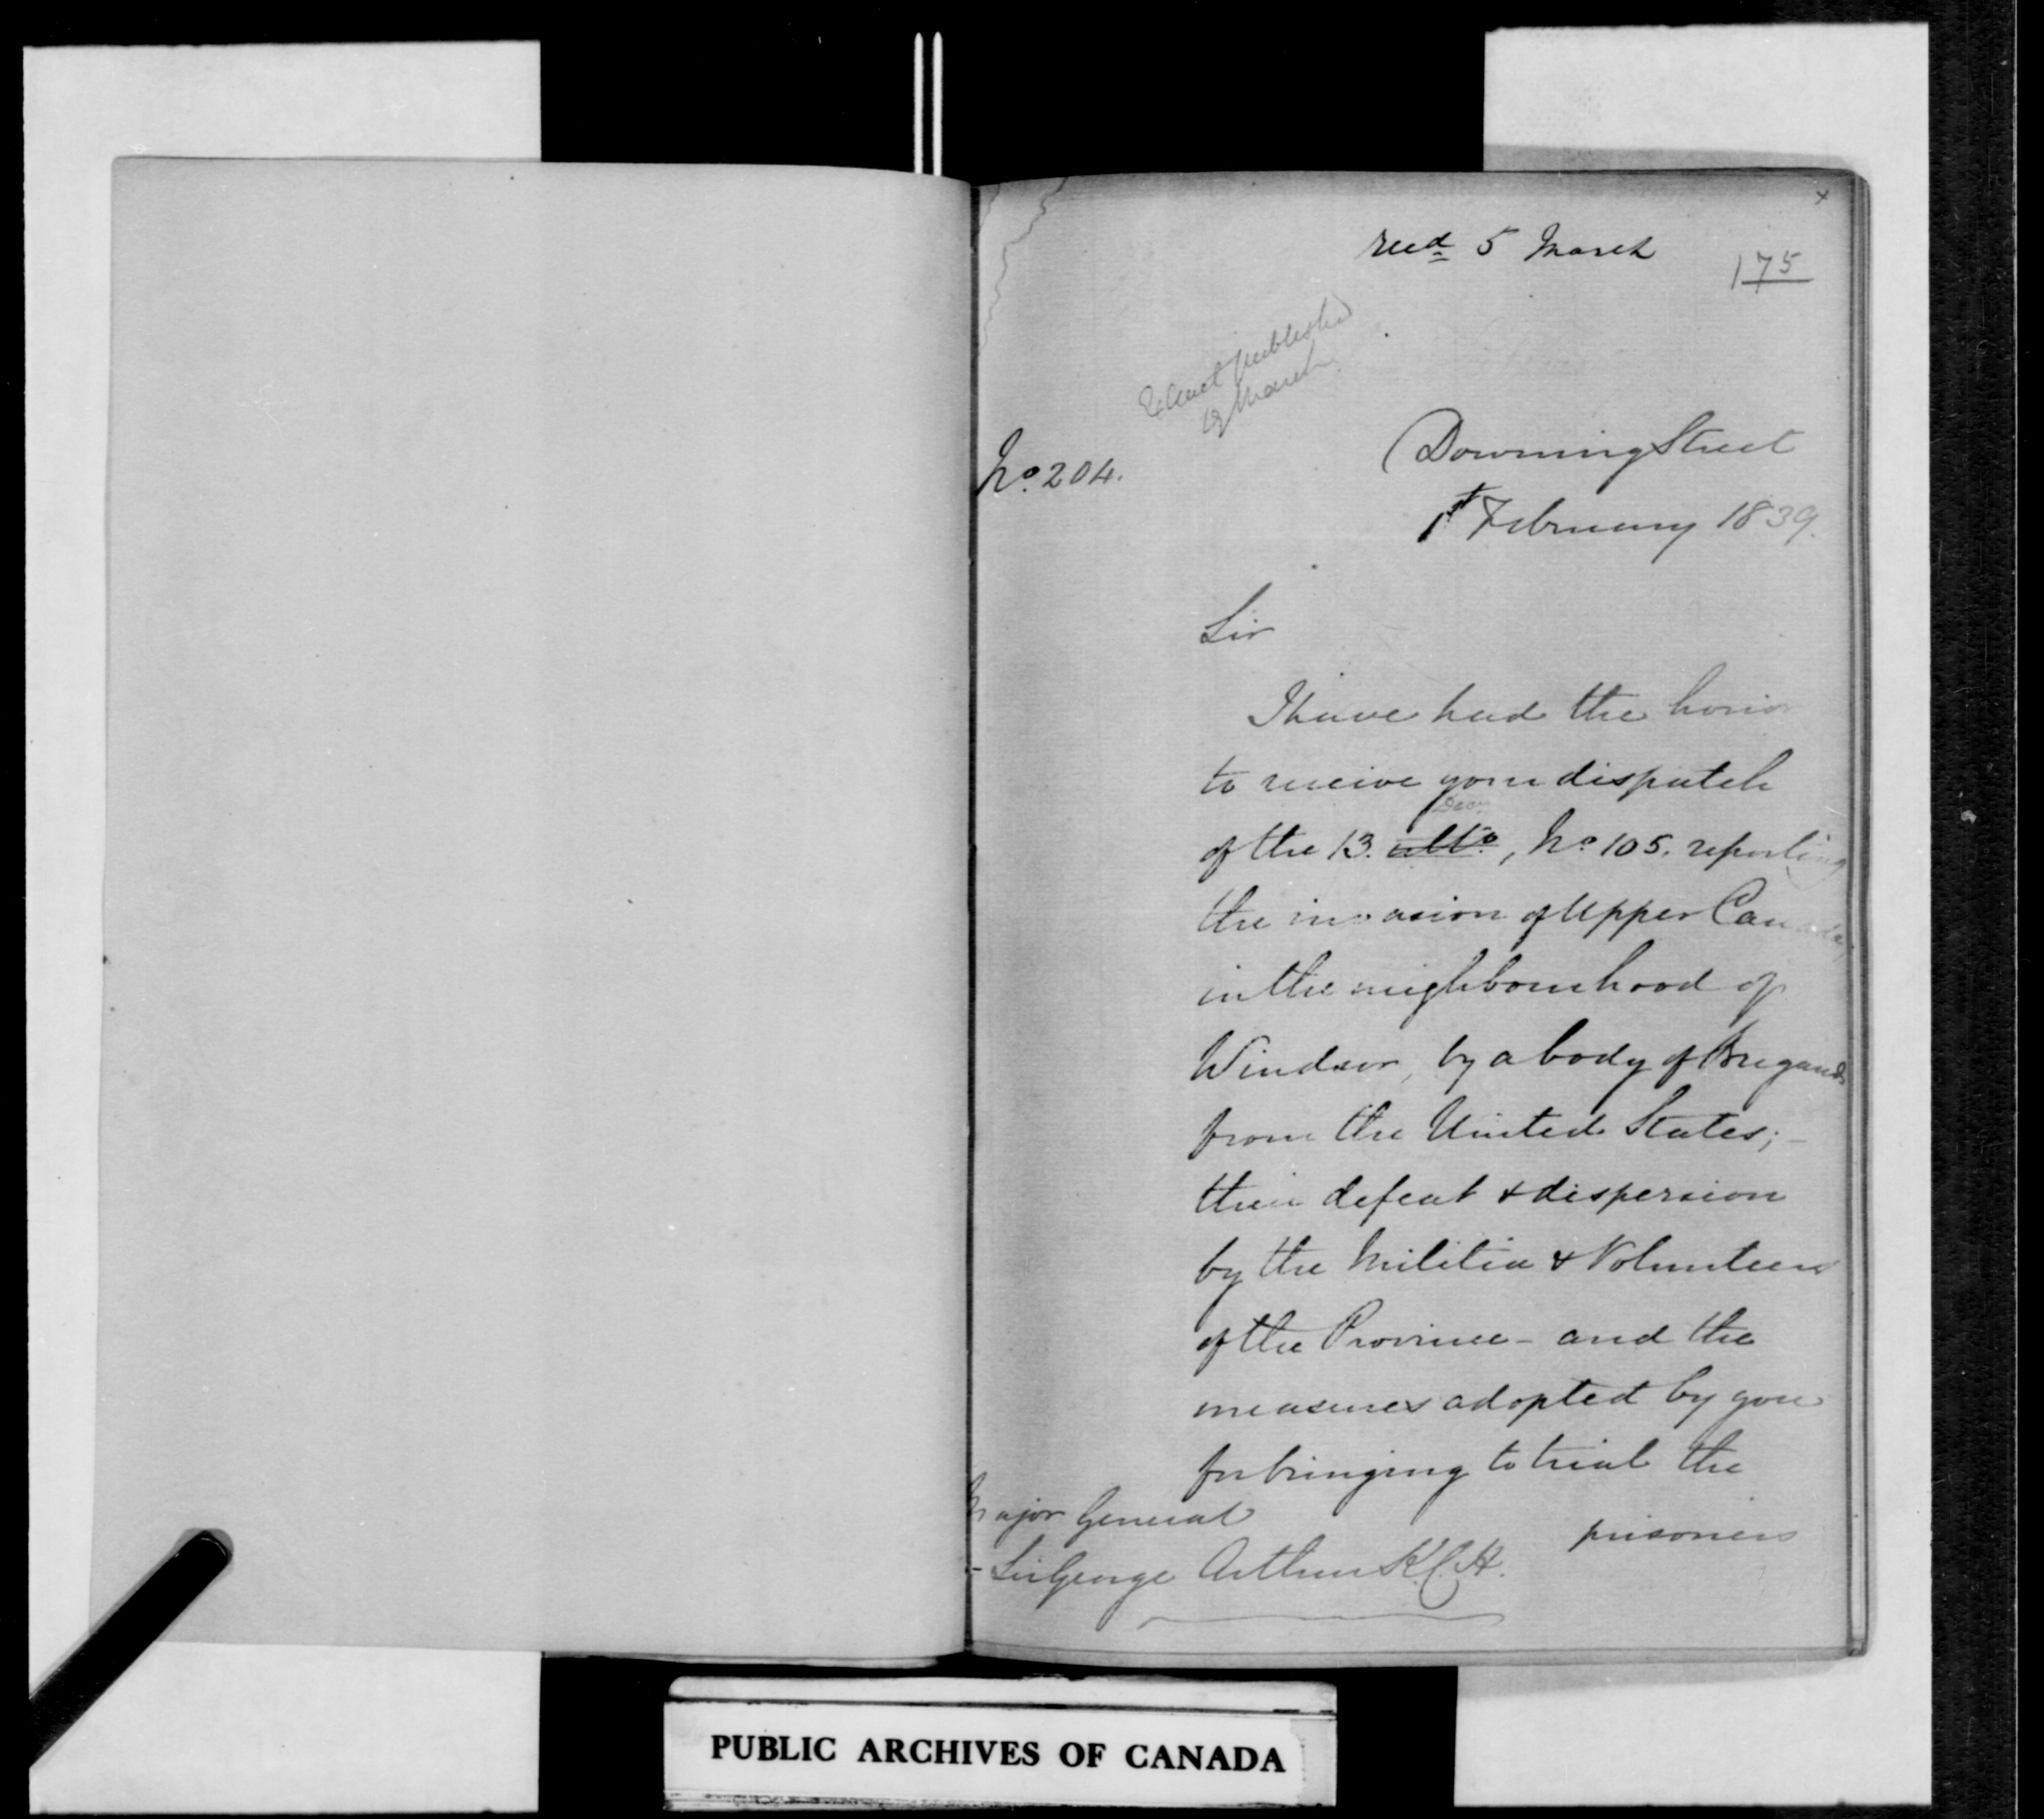 x
recd 5 March
175
Extract published
March
No. 204.
Downing Street
1st February 1839.
Sir
I have had the honor
to receive your dispatch
Decr
of the 13. ulto., No 105. reporting
the invasion of Upper Canada,
in the neighbourhood of
Windsor, by a body of Brigands
from the United States; -
their defeat & dispersion
by the Militia & Volunteers
of the Province - and the
measures adopted by you
for bringing to trial the
prisoners
Major General
- Sir George Arthur K.C.H.
PUBLIC ARCHIVES OF CANADA